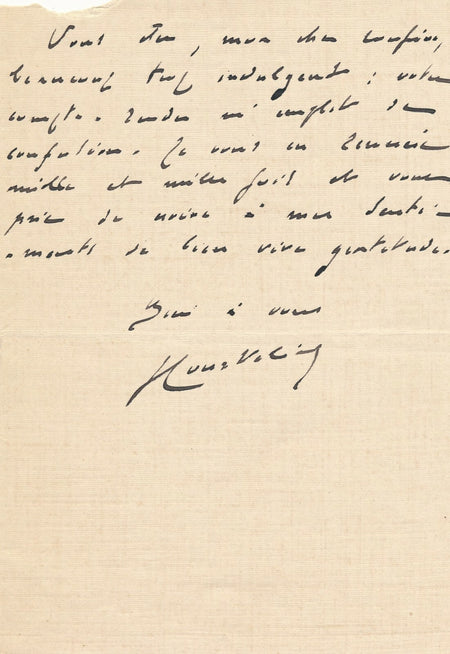 Vous êtes, mon cher confrère,
beaucoup trop indulgent ; votre
compte-rendu m'emplit de
confusion. Je vous en remercie
mille et mille fois et vous
prie de croire à mes senti-
-ments de bien vive gratitude.
Bien à vous